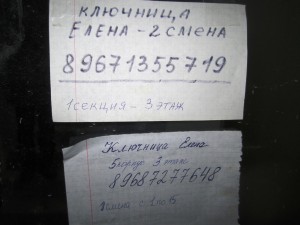 КЛЮЧНИЦА
ЕЛЕНА - 2 СМЕНА
89671355719
1 СЕКЦИЯ - 3 ЭТАЖ
Ключница Елена
3 этаж
89687277648